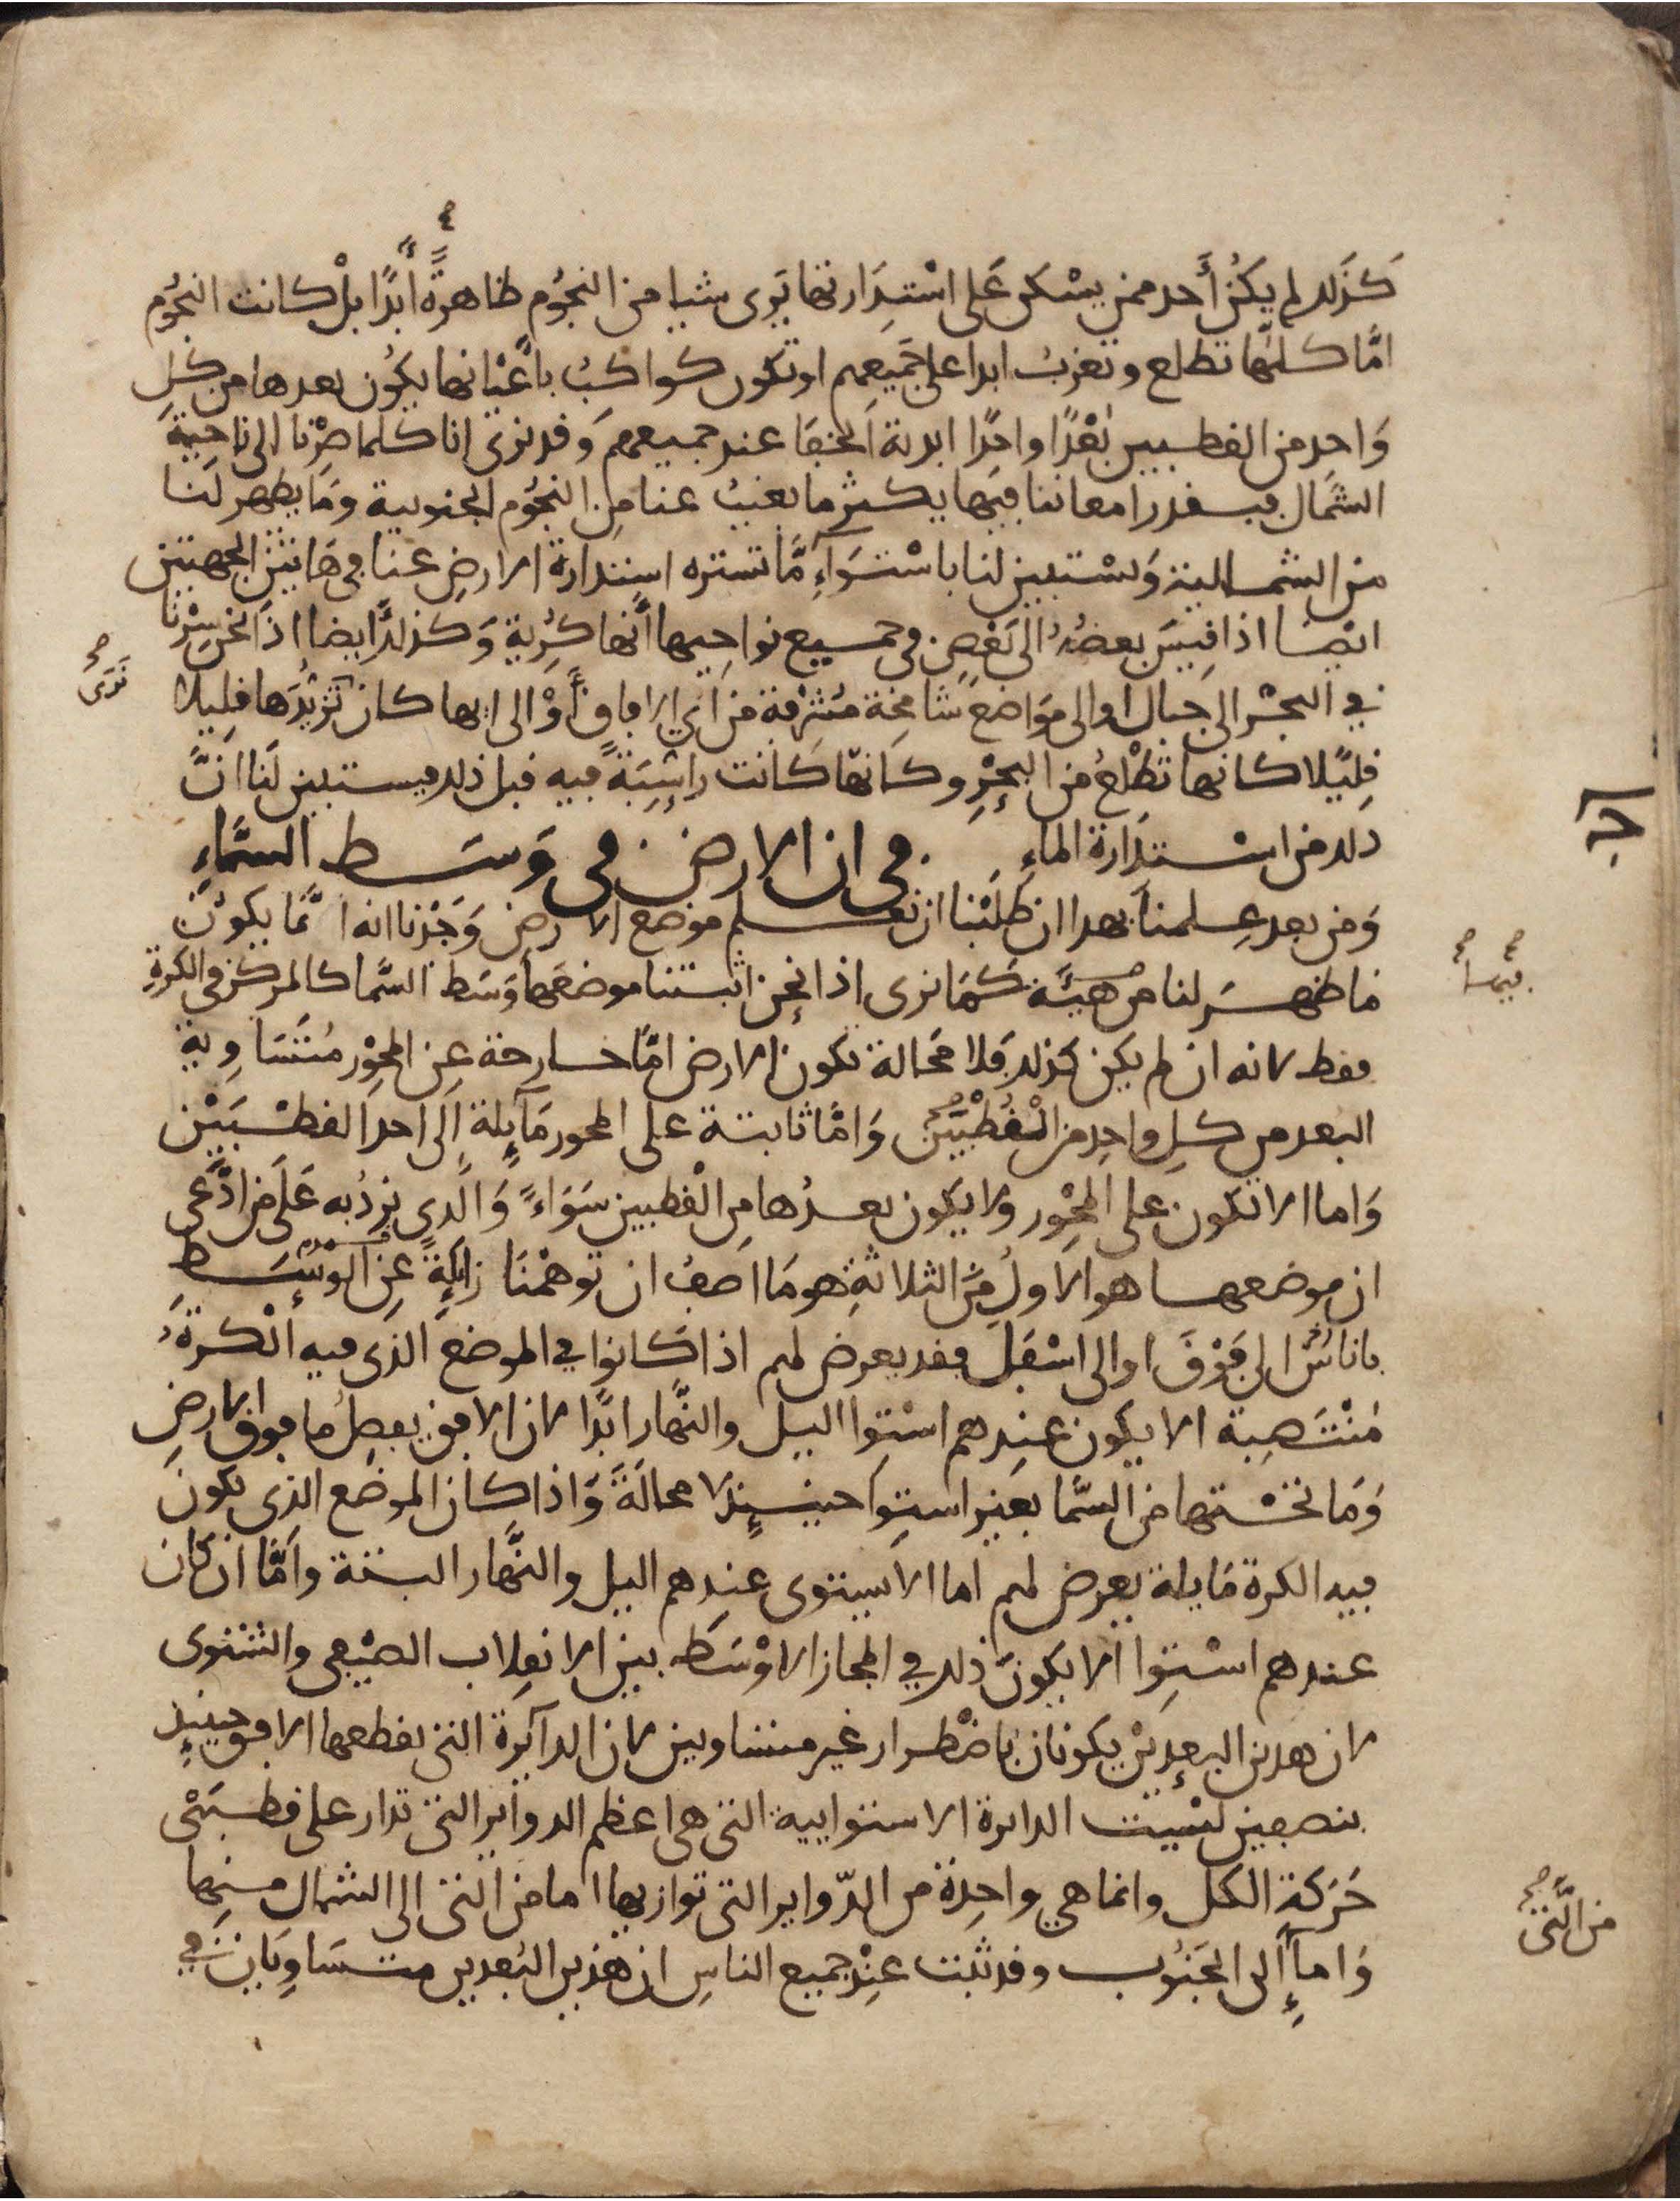 كَذَلك لم يكُن أَحد ممن يسْكن عَلى اسْتِدَارتها يَرى شيا من النجُوم ظاهرةً أبدًا بلْ كانت النجُوم
امَّا كلّها تطلع وتغربُ ابدا على جَميعِهم او تكون كواكبُ باَعْيانها يكُون بعدها من كلِ
وَاحِدٍ من القطبين بُعْدًا واحِدًا ابدية الخفَا عند جميعهم وَقد نرى انا كلما صِرْنا الى ناحِيةِ
الشمَال فبقدر امعاننا فيهَا يكثر ما يغيبُ عنا مِن النجُوم الجنوبية وَمَا يظهر لَنا
من الشمالية وَيسْتبين لنا باسْتوَآءِ مَّا تستره استدارة الارضِ عنا في هَاتَيْن الجهتين
ايْضا اذا قِيسَ بعضُهُ الى بَعْضٍ في جميع نواحِيها أنَّها كرِيَة وَكذلكَ ايضا اذَا نحْن سِرْنا
في البحْر الى جِبال او الى موَاضعَ شَامِخَة مُشْرِفة من أي الافاق أَوْ الى ايها كان تزيُّدَهَا قليلا
نَرَى صح
قليلا كانها تطْلُع من البحْرِ وكَأنهّا كَانت رَاسِبَةً فيه قبل ذلك فيستبين لَنا انَّ
ذلك من استدَارة الماءِ في ان الارض في وَسَط السَّمَاءِ
وَمن بعد عِلمنا بهدا ان طلَبْنا ان نعلم موضع الارض وَجَدْنا انه انَّما يكوُن
مَا ظهَر لنا من هَيْئَة كمَا نرى اذا نحْن اثبتنا موضعَها وَسَط السَّما كالمركز في الكرةِ
فيها صح
فقط لانه ان لم يكن كذلك فَلا محَالة تكون الارض امَّا خارجة عِن المحْوَر مُتَسَاوِية
البعد من كلِ واحِدٍ من الْقُطْبَيْن وَامّا ثابتة على المحور مَآيِلة الَى احد القطْبَيْن
وَاما الا تكون على المحْوَر ولا يَكون بعدُها من الْقطبين سَوَاءً وَالَّدي نردُّ به عَلَى من ادَّعى
ان موضعها هو الاولُ مِنَ الثلاثةِ هو مَا اصفُ ان توهمْنَا زايلةً عِن الوَسَطِ
باناسٍ الى فَوْقَ او الى اسْفَل فقد يعرض لهم اذا كانوا في الموضعَ الذى فيه الْكرةُ
مُنْتَصِبة الا يكون عندهم اسْتِوا اليل والنَّهار ابدًا لان الافق يفصل ما فوق الارضِ
وَمَا تحْتها من السَّما بغير استِوا حينيذٍ لا محالَةَ وَاذا كان الموضع الذي تكون
فيه الكرة مَايلة يعرض لهم اما الا يستوى عندهم اليل والنَّهار البتة واَمَّا ان كان
عندهم اسْتِوا الا يكونَ ذلك في المجاز الاوْسَط بين الانقلاب الصيْفي والشتوى
لان هدين البعدَيْن يكونان باضْطرار غير متساويين لان الدآيرة التي يقطعها الافق حينيذٍ
بنصفين ليْست الدايرة الاستوايية التي هي اعظم الدوآير التي تدار على قطبَيْ
حَرَكة الكل وانما هي واحِدة من الدّواير التي توازيها اما من التي الى الشمال منها
من الَّتي صح
وَامآ إلى الجَنُوب وقد ثبَت عنْد جميع الناسِ ان هَذين البُعدين متسَاوِيَان في